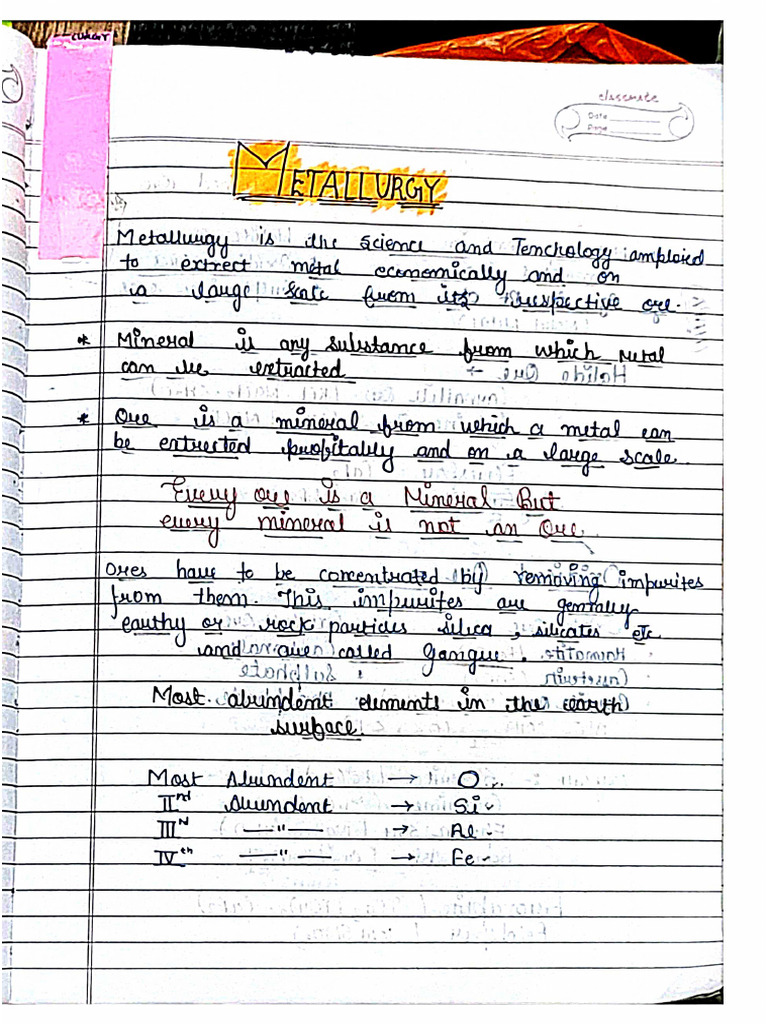 classmate
Date
Page
METALLURGY
Metallurgy is the Science and Tenchology amploied
to extrect metal economically and on
a large scale from its respective ore.
* Mineral is any substance from which metal
can be extracted
* Ore is a mineral from which a metal can
be extrected profitably and on a large scale
Every ore is a Mineral But
every mineral is not an Ore
Ores have to be concentrated by removing impurites
from them. This impurites are genrally
earthy or rock particles silica, silicates etc
and are called Gangue.
Most abundent elements in the earth
surface
Most Abundent → O
IInd Abundent → Si
IIIN —"— → Al
IVth —"— → Fe